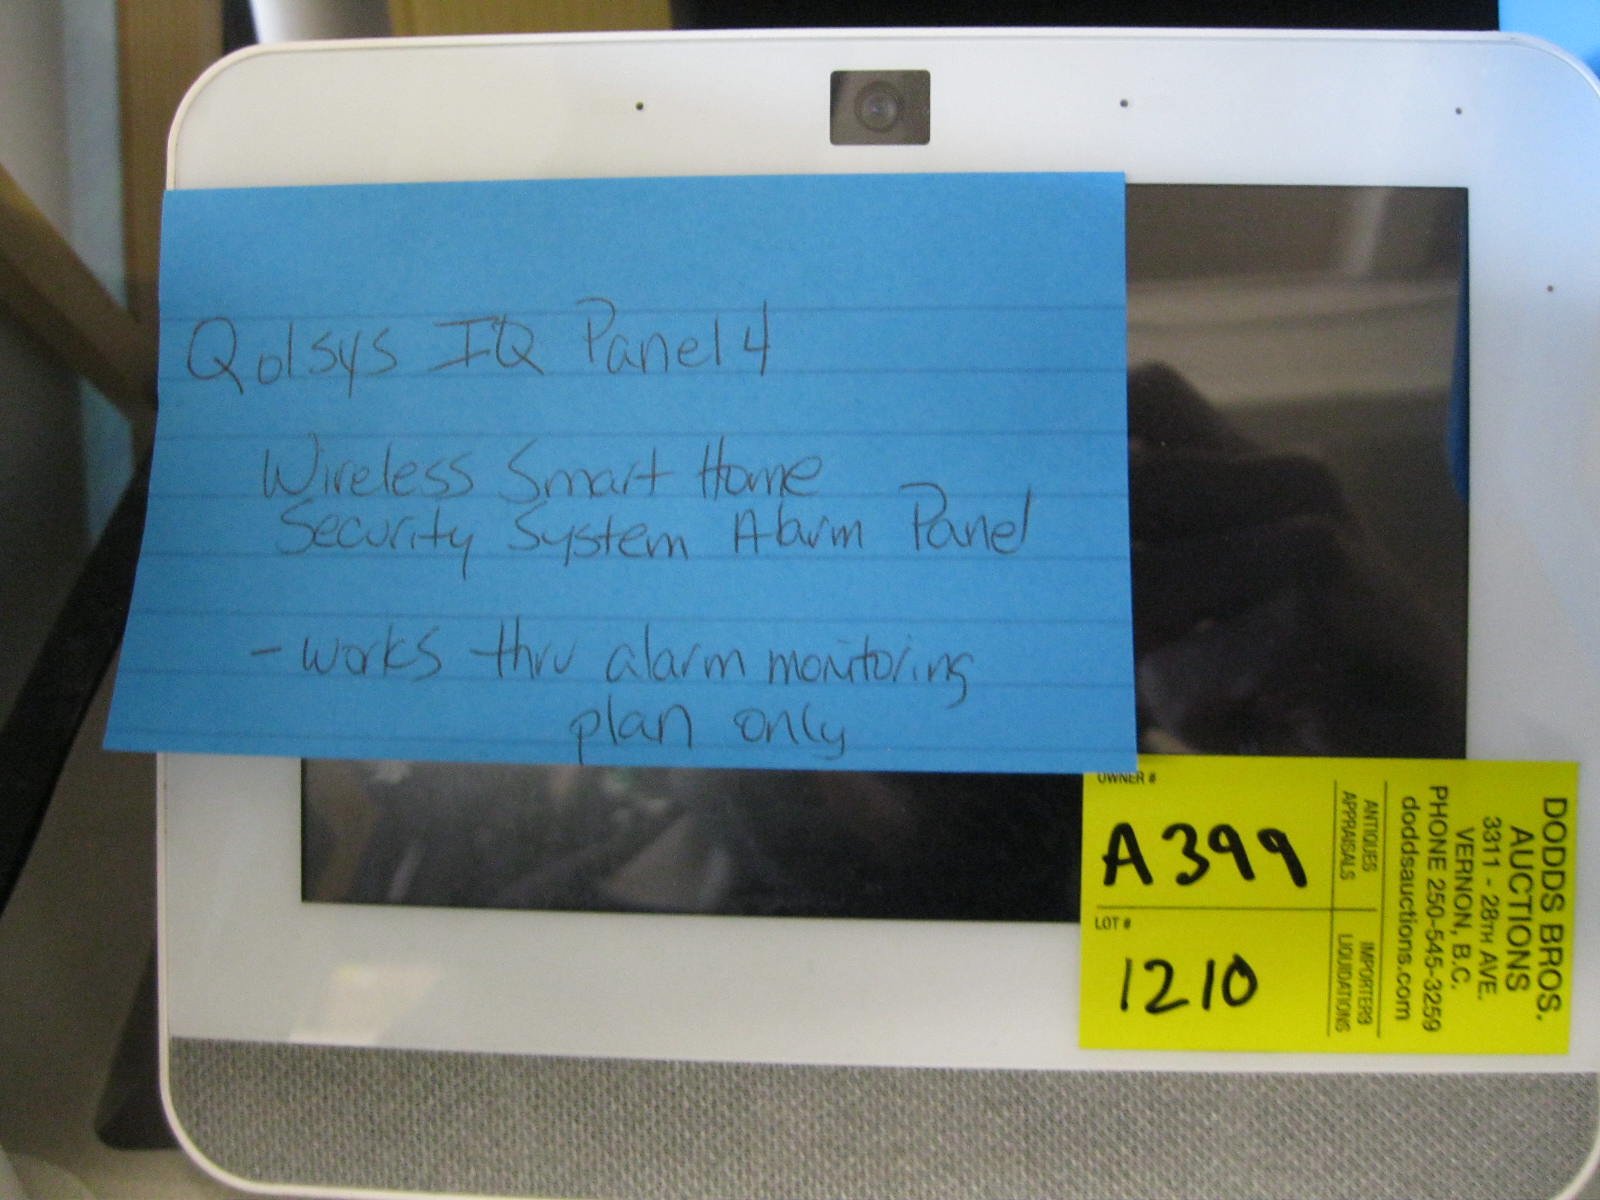 Qolsys IQ Panel 4
Wireless Smart Home
Security System Alarm Panel
- works thru alarm monitoring
plan only
OWNER #
A399
LOT #
1210
ANTIQUES
APPRAISALS
IMPORTERS
LIQUIDATIONS
DODDS BROS.
AUCTIONS
3311 - 28TH AVE.
VERNON, B.C.
PHONE 250-545-3259
doddsauctions.com